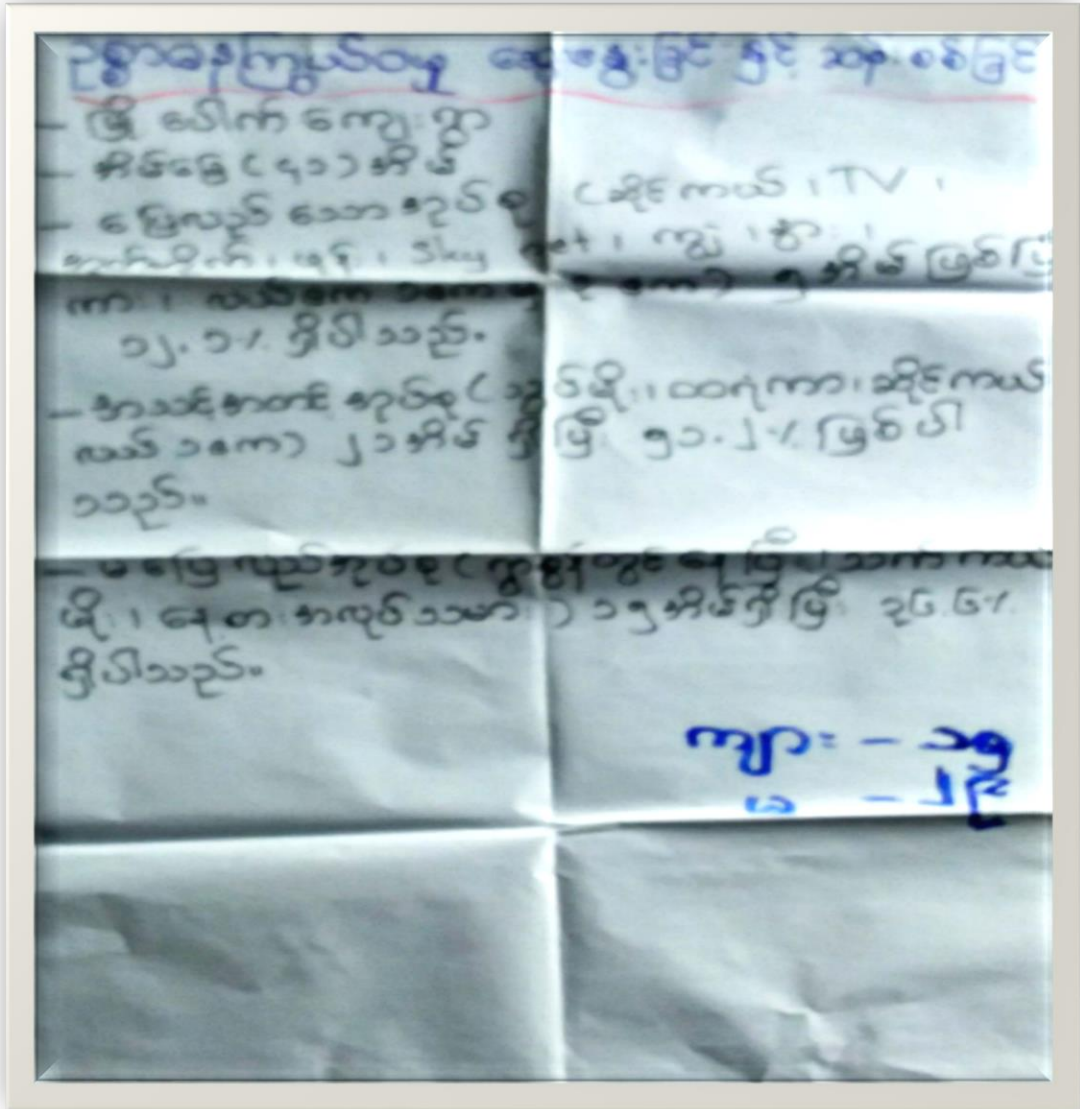 ဥစ္စာဓနကြွယ်ဝမှု ဆွေးနွေးခြင်း နှင့် ဆန်းစစ်ခြင်း
– မြို့ပေါက်ကျေးရွာ
– အိမ်ခြေ (၄၁) အိမ်
– ပြေလည်သောအုပ်စု (ဆိုင်ကယ်၊ TV ၊
ဖုန်း၊ Sky net၊ ကျွဲ၊ နွား၊
ကား၊ ၅အိမ်ဖြစ်ပြီး
၁၂.၁% ရှိပါသည်။
– အသင့်အတင့်အုပ်စု (သွပ်မိုး၊ ထရံကာ၊ ဆိုင်ကယ်
လယ် ၁ဧက) ၂၁အိမ် ရှိပြီး ၅၁.၂% ဖြစ်ပါ
သည်။
– မပြေလည်အုပ်စု (ကျွန်းတွင်နေပြီး၊ သက်ကယ်
မိုး၊ နေ့စားအလုပ်သမား) ၁၅အိမ်ရှိပြီး ၃၆.၆%
ရှိပါသည်။
ကျား – ၁၅
မ –